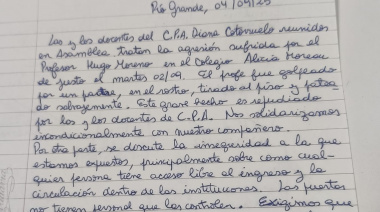 Río Grande, 04/09/25
Las y los docentes del C.P.A. Diana Cotorruelo reunidos
en Asamblea tratan la agresión sufrida por el
Profesor Hugo Moreno en el Colegio Alicia Moreau
de Justo el martes 02/09. El profe fue golpeado
por un padre, en el rostro, tirado al piso y patea-
do salvajemente. Este grave hecho es repudiado
por los y los docentes de C.P.A. Nos solidarizamos
incondicionalmente con nuestro compañero.
Por otra parte, se discute la inseguridad a la que
estamos expuestos, principalmente sobre como cual-
quier persona tiene acceso libre al ingreso y la
circulación dentro de las instituciones. Las puertas
no tienen personal que las controlen. Exigimos que